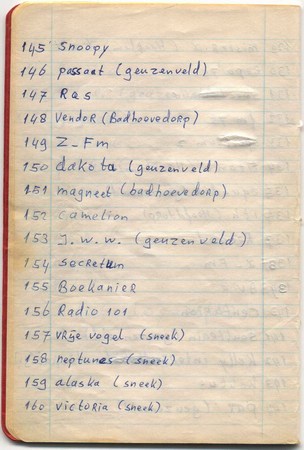 145 Snoopy
146 passaat (geuzenveld)
147 Ras
148 Vendor (Badhoevedorp)
149 Z-Fm
150 dakota (geuzenveld)
151 magneet (badhoevedorp)
152 Camelion
153 J.W.W. (geuzenveld)
154 Secretum
155 Boekanier
156 Radio 101
157 vrije vogel (sneek)
158 neptunes (sneek)
159 alaska (sneek)
160 victoria (sneek)